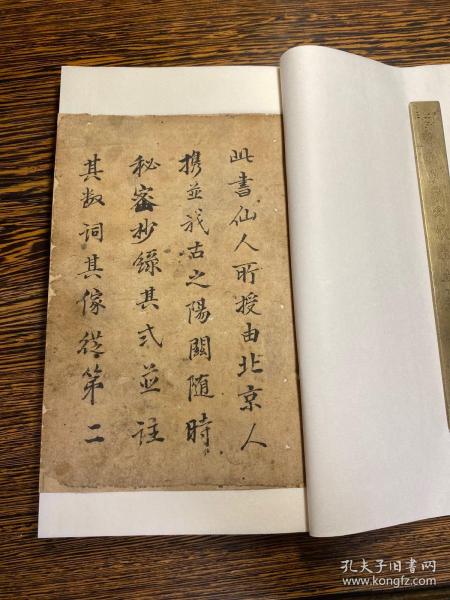 此書仙人所授由北京人
携並我古之陽關随時
秘密抄錄其式並註
其数詞其像從第二
孔夫子旧书网
www.kongfz.com